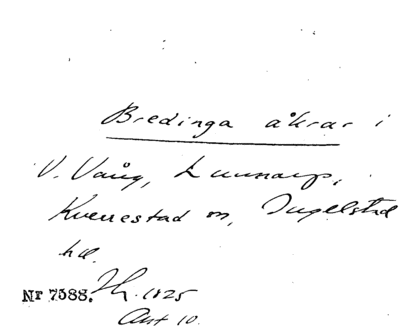 Bredinga åkrar i
V. Vång, Lunnarp,
Kverrestad sn, Ingelstad
hd.
Nr 7588. Th. 1825
Akt 10.